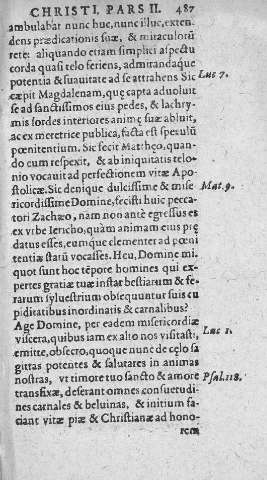 CHRISTI. PARS II. 487
ambulabat nunc huc, nunc illuc, exten
dens prædicationis suæ, & miraculorū
rete: aliquando etiam simplici aspectu
corda quasi telo feriens, admirandaque
potentia & suauitate ad se attrahens. Sic Luc 7.
cæpit Magdalenam, quę capta aduoluit
se ad sanctissimos eius pedes, & lachry-
mis sordes interiores animę suæ abluit,
ac ex meretrice publica, facta est speculū
pœnitentium. Sic fecit Matthęo, quan-
do eum respexit, & ab iniquitatis telo-
nio vocauit ad perfectionem vitæ Apo-
stolicæ. Sic denique dulcissime & mise Mat. 9.
ricordissime Domine, fecisti huic pecca-
tori Zachæo, nam non antè egressus es
ex vrbe Iericho, quàm animam eius prę
datus esses, eumque clementer ad pœni
tentiæ statū vocasses. Heu, Domine mi,
quot sunt hoc tēpore homines qui ex-
pertes gratiæ tuæ instar bestiarum & fe-
rarum syluestrium obsequuntur suis cu
piditatibus inordinatis & carnalibus?
Age Domine, per eadem misericordiæ
viscera, quibus iam ex alto nos visitasti, Luc 1.
emitte, obsecro, quoque nunc de cęlo sa
gittas potentes & salutares in animas
nostras, vt timore tuo sancto & amore Psal. 118.
transfixæ, deserant omnes consuetudi-
nes carnales & beluinas, & initium fa-
ciant vitæ piæ & Christianæ ad hono-
rem